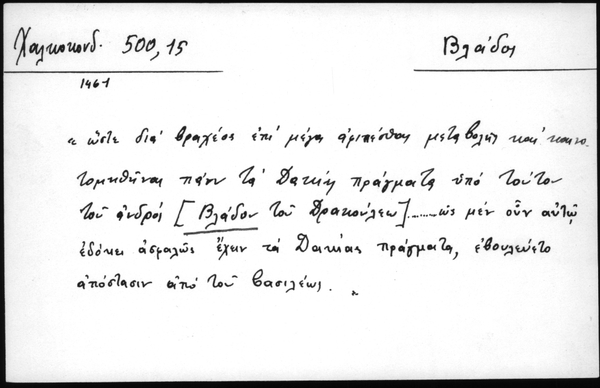 Χαλκοκονδ. 500,15
Βλάδος
1461
« ὥστε διά βραχέος ἐπί μέγα ἀφικέσθαι μεταβολῆς καί καινο-
τομηθῆναι πάνυ τά Δακίης πράγματα ὑπό τούτου
τοῦ ἀνδρός [Βλάδου τοῦ Δρακούλεω] ........ ὡς μέν οὖν αὐτῷ
ἐδόκει ἀσφαλῶς ἔχειν τά Δακίας πράγματα, ἐβουλεύετο
ἀπόστασιν ἀπό τοῦ βασιλέως. »